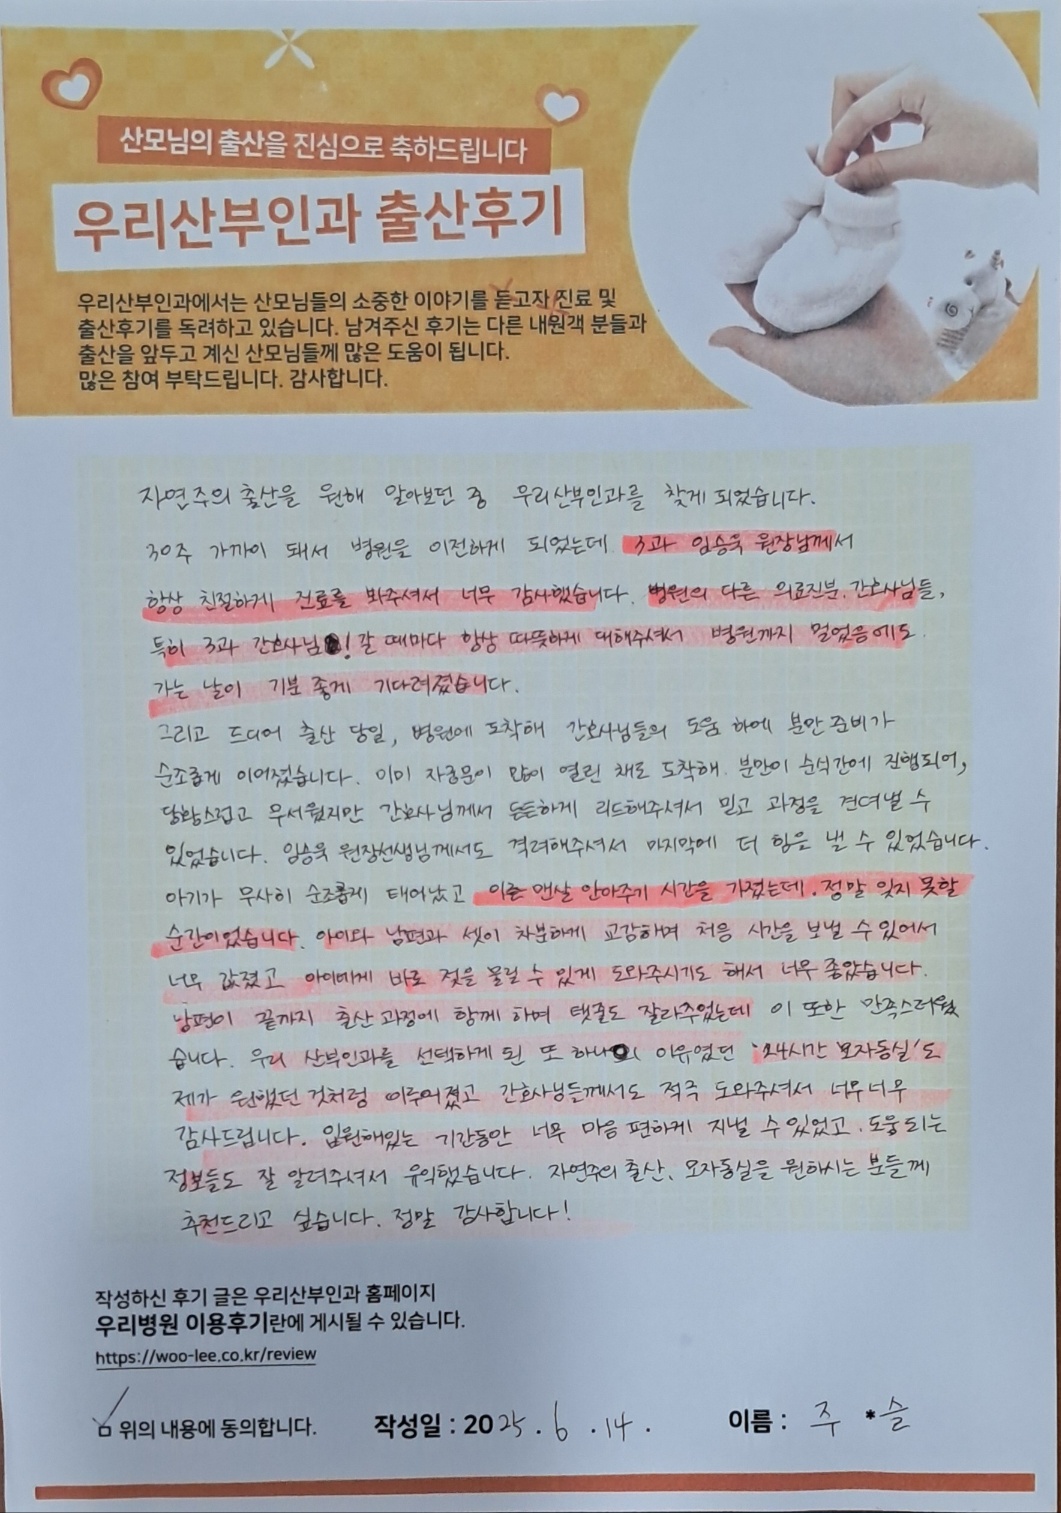 산모님의 출산을 진심으로 축하드립니다
우리산부인과 출산후기
우리산부인과에서는 산모님들의 소중한 이야기를 듣고자 진료 및
출산후기를 독려하고 있습니다. 남겨주신 후기는 다른 내원객 분들과
출산을 앞두고 계신 산모님들께 많은 도움이 됩니다.
많은 참여 부탁드립니다. 감사합니다.
자연주의 출산을 원해 알아보던 중 우리산부인과를 찾게 되었습니다.
30주 가까이 돼서 병원을 이전하게 되었는데. 3과 임승욱 원장님께서
항상 친절하게 진료를 봐주셔서 너무 감사했습니다. 병원의 다른 의료진분. 간호사님들,
특히 3과 간호사님! 갈 때마다 항상 따뜻하게 대해주셔서 병원까지 멀었음에도
가는 날이 기분 좋게 기다려졌습니다.
그리고 드디어 출산 당일, 병원에 도착해 간호사님들의 도움 하에 분만 준비가
순조롭게 이어졌습니다. 이미 자궁문이 많이 열린 채로 도착해. 분만이 순식간에 진행되어,
당황스럽고 무서웠지만 간호사님께서 든든하게 리드해주셔서 믿고 과정을 견뎌낼 수
있었습니다. 임승욱 원장선생님께서도 격려해주셔서 마지막에 더 힘을 낼 수 있었습니다.
아기가 무사히 순조롭게 태어났고 이른 맨살 안아주기 시간을 가졌는데. 정말 잊지 못할
순간이었습니다. 아이와 남편과 셋이 차분하게 교감하며 처음 시간을 보낼 수 있어서
너무 값졌고 아이에게 바로 젖을 물릴 수 있게 도와주시기도 해서 너무 좋았습니다.
남편이 끝까지 출산 과정에 함께 하며 탯줄도 잘라주었는데 이 또한 만족스러웠
습니다. 우리 산부인과를 선택하게 된 또 하나의 이유였던 '24시간 모자동실'도
제가 원했던 것처럼 이루어졌고 간호사님들께서도 적극 도와주셔서 너무너무
감사드립니다. 입원해있는 기간동안 너무 마음 편하게 지낼 수 있었고. 도움되는
정보들도 잘 알려주셔서 유익했습니다. 자연주의 출산, 모자동실을 원하시는 분들께
추천드리고 싶습니다. 정말 감사합니다!
작성하신 후기 글은 우리산부인과 홈페이지
우리병원 이용후기란에 게시될 수 있습니다.
https://woo-lee.co.kr/review
위의 내용에 동의합니다. 작성일 : 2025. 6. 14. 이름 : 주 *슬